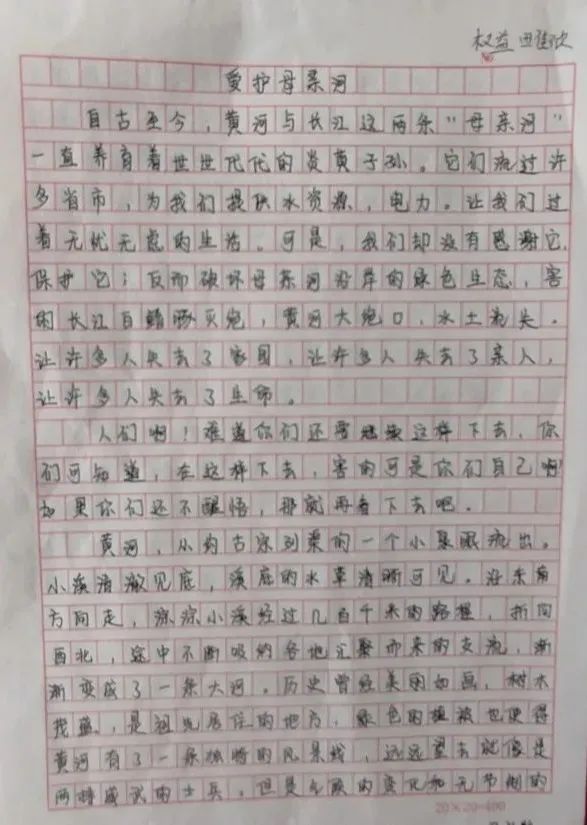 权益 田佳欣
爱护母亲河
自古至今，黄河与长江这两条“母亲河”
一直养育着世世代代的炎黄子孙。它们流过许
多省市，为我们提供水资源，电力。让我们过
着无忧无虑的生活。可是，我们却没有感谢它，
保护它；反而破坏母亲河沿岸的绿色生态，害
的长江白鳍豚灭绝，黄河大绝口，水土流失。
让许多人失去了家园，让许多人失去了亲人，
让许多人失去了生命。
人们啊！难道你们还要继续这样下去，你
们可知道，在这样下去，害的可是你们自己啊
如果你们还不醒悟，那就再看下去吧。
黄河，从约古宗列渠的一个小泉眼流出。
小溪清澈见底，溪底的水草清晰可见。沿东南
方向走，淙淙小溪经过几百千米的路程，折向
西北，途中不断吸纳各地汇聚而来的支流，渐
渐变成了一条大河。历史曾经美的如画，树木
茂盛，是祖先居住的地方，绿色的植被也使得
黄河有了一条独特的风景线，远远望去就像是
两排威武的士兵。但是气候的变化和无节制的
20×20=400